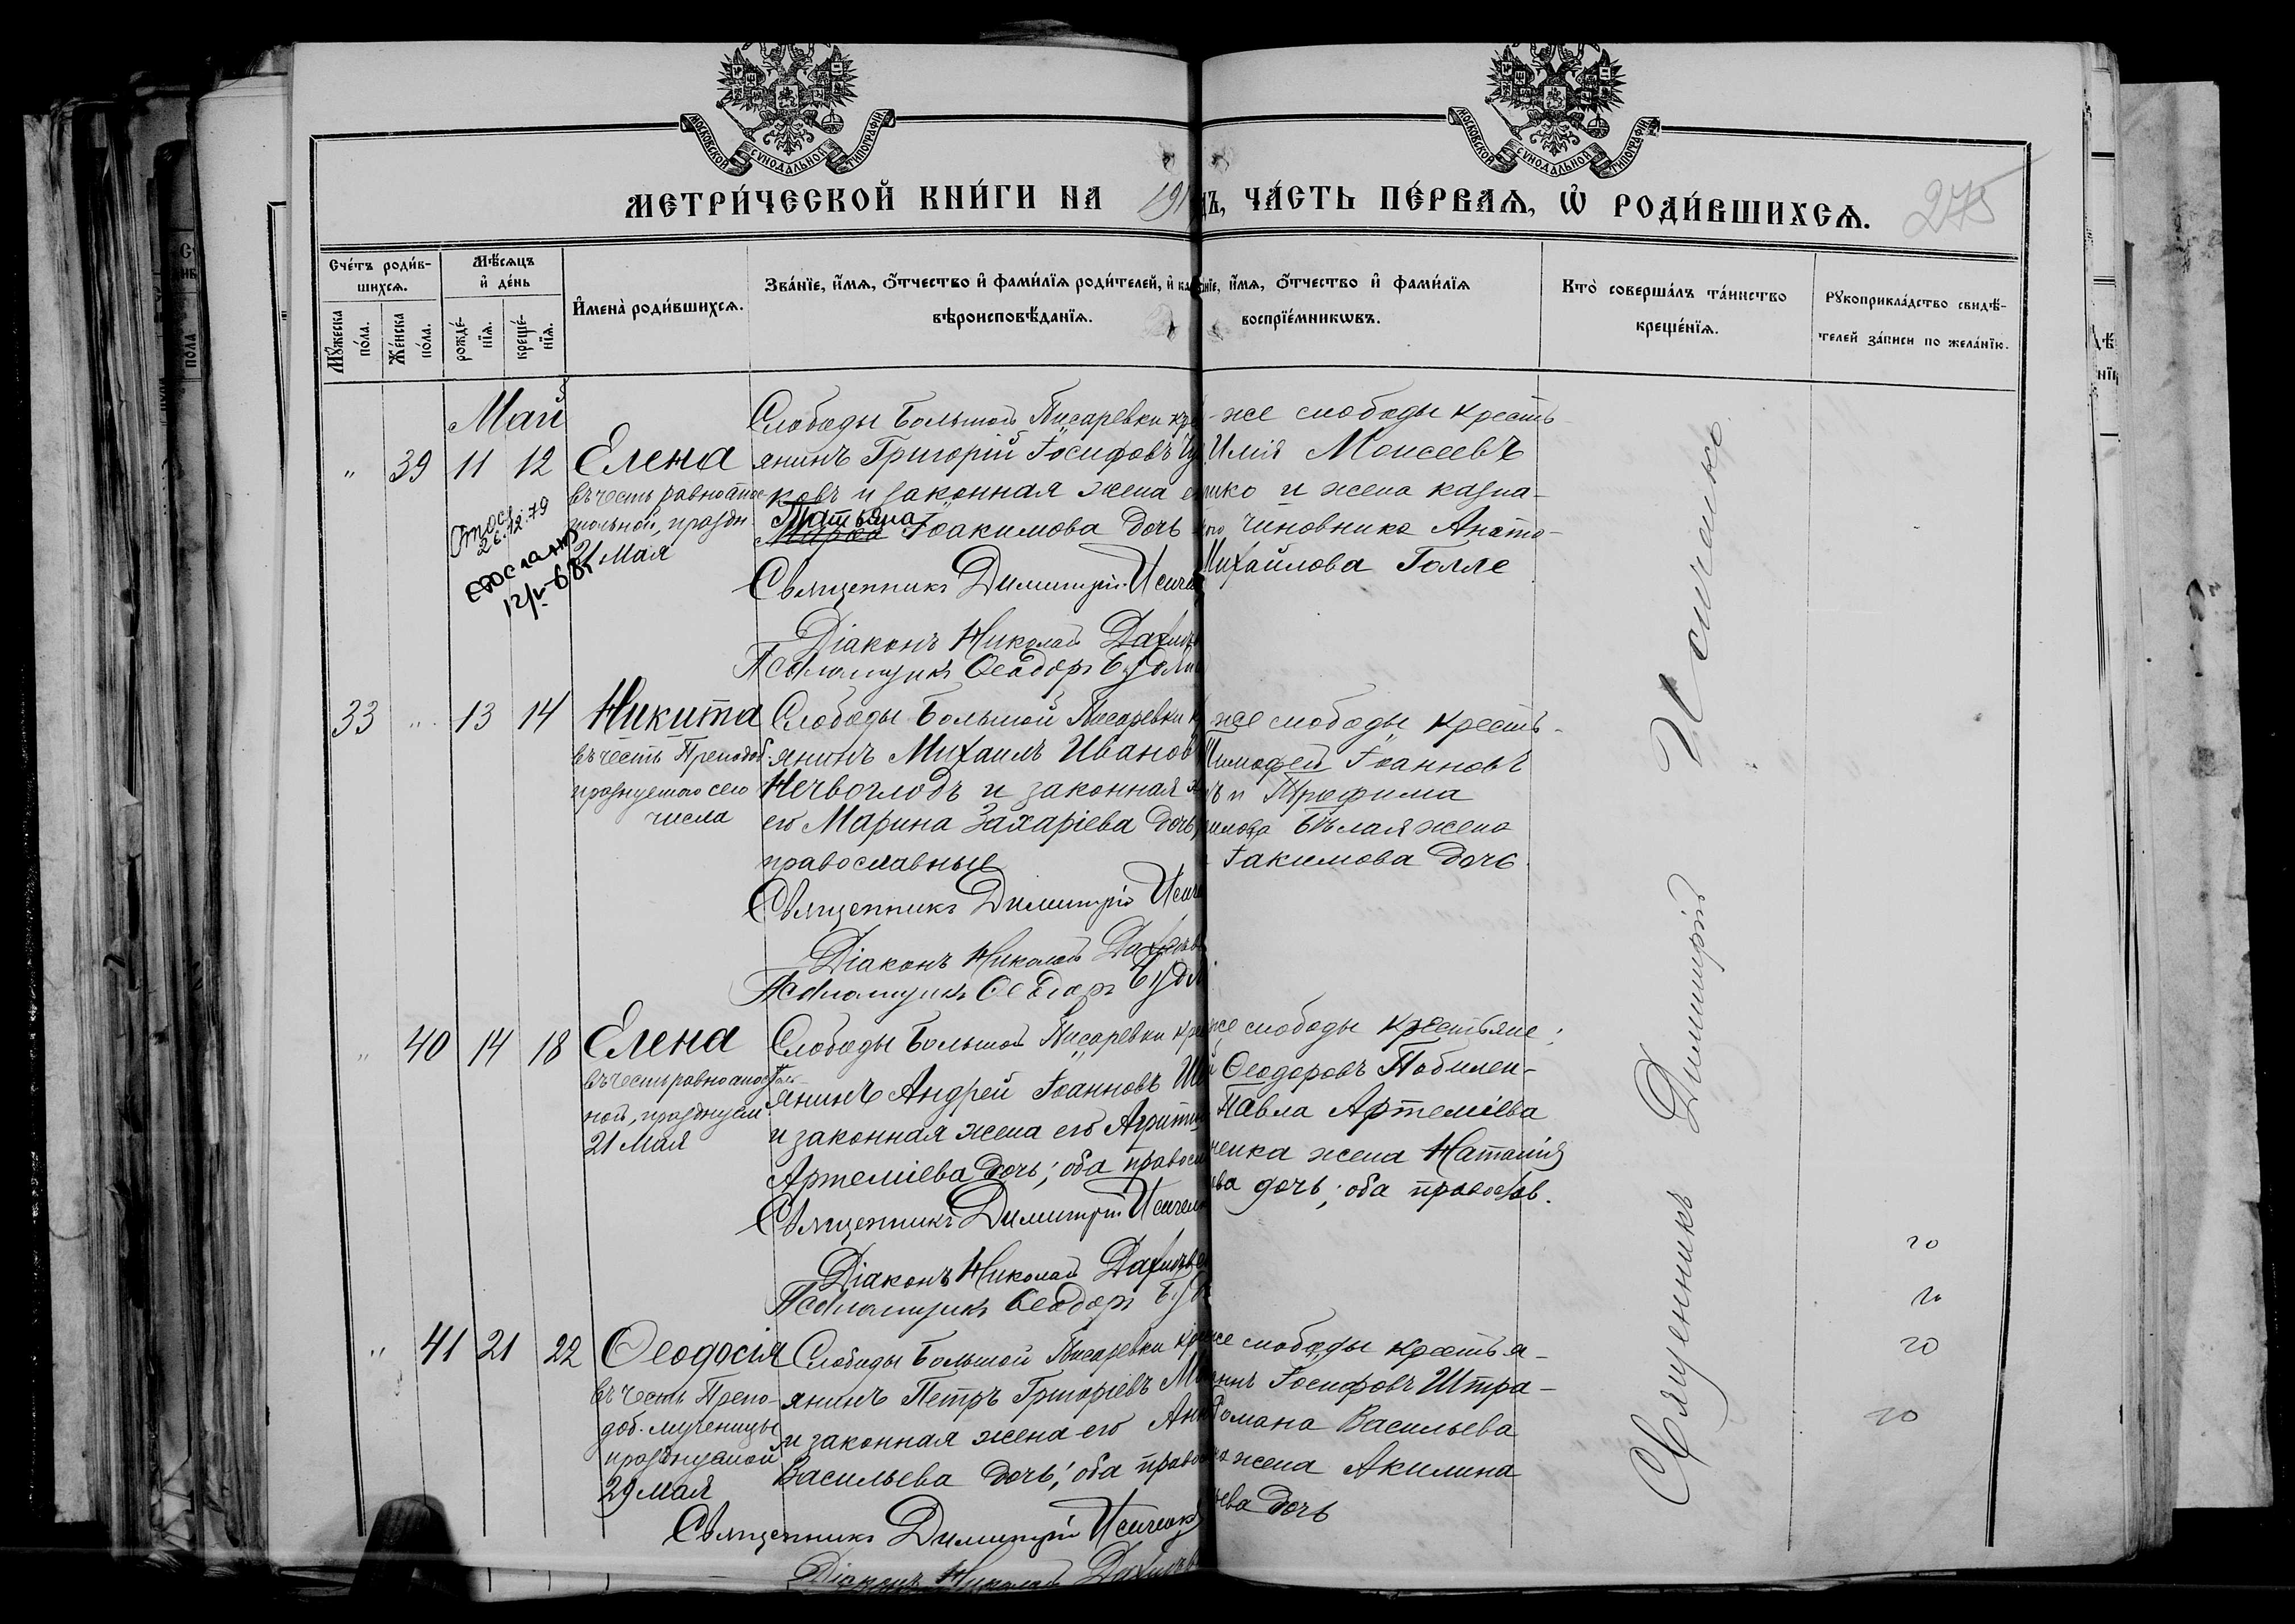 МОСКОВСКОЙ СѴНОДАЛЬНОЙ ТИПОГРАФІИ
МОСКОВСКОЙ СѴНОДАЛЬНОЙ ТИПОГРАФІИ
МЕТРИ́ЧЕСКОЙ КНИ́ГИ НА 191
ДЪ, ЧА́СТЬ ПЕ́РВАѦ, Ѡ҆ РОДИ́ВШИХСѦ.
275
Сче́тъ роди́в-
шихсѧ.
Мꙋ́жеска по́ла.
Же́нска по́ла.
Мѣ́сѧцъ
и҆ де́нь
рожде́-
нїѧ.
креще́-
нїѧ.
И҆мена̀ роди́вшихсѧ.
Зва́нїе, и҆́мѧ, ѻ҆́тчество и҆ фами́лїѧ роди́телей, и҆ ка
вѣроисповѣ́данїѧ.
нїе, и҆́мѧ, ѻ҆́тчество и҆ фами́лїѧ
воспрїе́мникѡвъ.
Кто̀ соверша́лъ та́инство
креще́нїѧ.
Рꙋкоприкла́дство свидѣ́-
телей за́писи по жела́нїю.
Май
„ 39 11 12 Елена
въ честь равноапос-
тольной, праздн
21 Мая
26.12.79
отослано
Слободы Большой Писаревки кре
янинъ Григорій Іосифовъ
ковъ и законная жена е
Татьяна
Іоакимова дочь
Священникъ Димитрій Исиче
Діаконъ Николай
Псаломщикъ Ѳеодоръ
же слободы кресть-
Илія Моисеевъ
нко и жена казна-
чиновника Анато-
Михайлова Голле
33 „ 13 14 Никита
въ честь Преподоб.
празнуемого сего
числа
Слободы Большой Писаревки к
янинъ Михаилъ Иванов
Нечвоглодъ и законная ж
его Марина Захаріева дочь,
православные
Священникъ Димитрій Исиче
Діаконъ Николай
Псаломщикъ Ѳеодоръ
же слободы кресть-
Тимофей Іоанновъ
ъ и Трофима
Бѣлая жена
Іакимова дочь.
„ 40 14 18 Елена
въ честь равноапостоль-
ной, празднуем
21 Мая
Слободы Большой Писаревки кре
янинъ Андрей Іоанновъ
и законная жена его Агрипин
Артеміева дочь; оба правосл
Священникъ Димитрій Исичен
Діаконъ Николай
Псаломщикъ Ѳеодоръ
же слободы крестьяне;
Ѳеодоровъ
Павла Артеміева
ченка жена Наталія
ева дочь; оба православ.
„ 41 21 22 Ѳеодосія
въ честь Препо-
доб. мученицы
празднуемой
29 Мая
Слободы Большой Писаревки кре
янинъ Петръ Григоріевъ
и законная жена его Анн
Васильева дочь; оба право
Священникъ Димитрій Исиченк
Діаконъ Николай
же слободы крестья-
нинъ Іосифовъ Штра-
Романа Васильева
ка жена Акилина
ева дочь
Священникъ Димитрій Исиченко
20
20
20
20